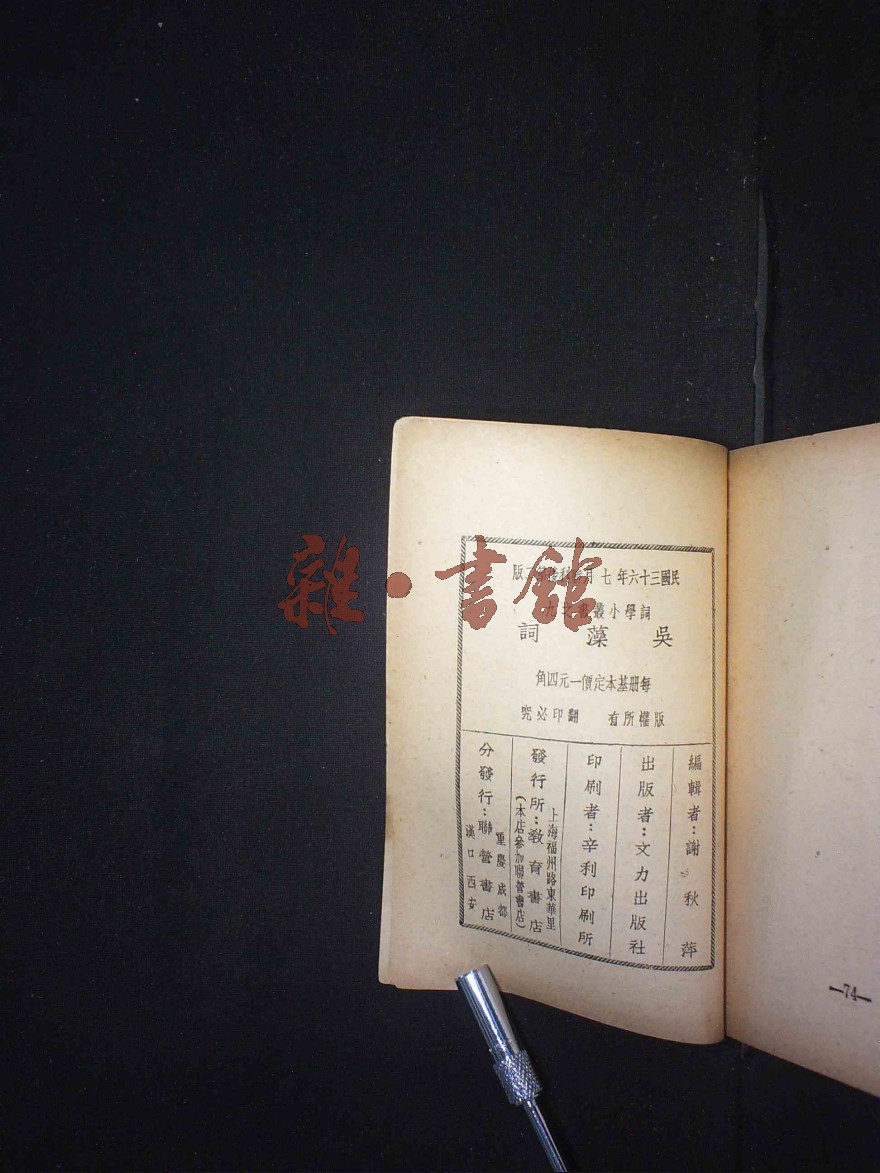 民國三十六年七月 版
詞學小叢書之九
吳藻詞
每册基本定價一元四角
版權所有 翻印必究
編輯者：謝秋萍
出版者：文力出版社
印刷者：辛利印刷所
上海福州路東華里
發行所：教育書店
（本店參加聯營書店）
重慶成都
分發行：聯營書店
漢口西安
—74—
雜·書館